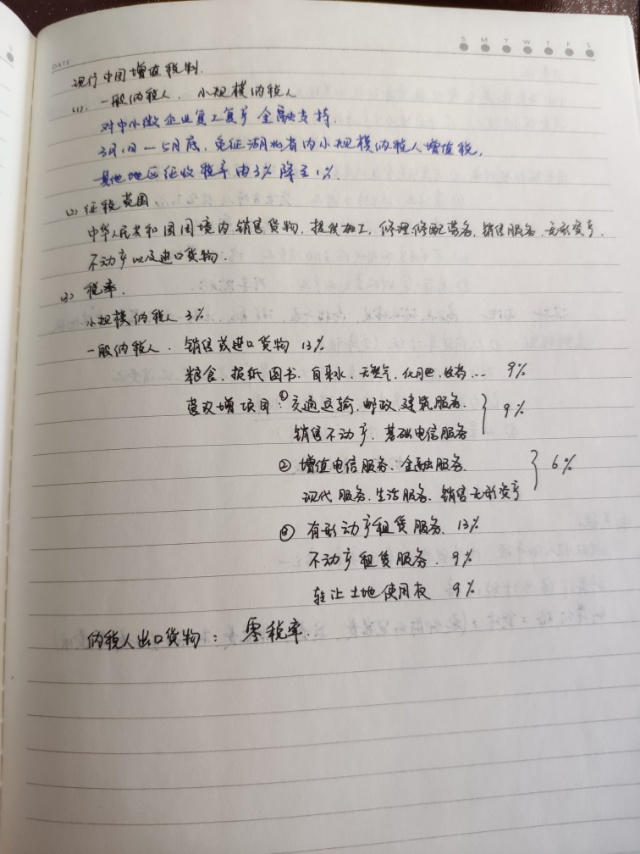 DATE
S M T W T F S
现行中国增值税制.
(1). 一般纳税人、小规模纳税人
对中小微企业复工复产金融支持.
3月1日—5月底, 免征湖北省内小规模纳税人增值税,
其他地区征收税率由3%降至1%.
(2) 征税范围
中华人民共和国国境内销售货物, 提供加工, 修理修配劳务, 销售服务、无形资产、
不动产以及进口货物.
(3) 税率.
小规模纳税人 3%
一般纳税人. 销售或进口货物 13%
粮食、报纸图书、自来水、天然气、化肥、农药… 9%
营改增项目: ① 交通运输、邮政、建筑服务、
销售不动产、基础电信服务 } 9%
② 增值电信服务、金融服务、
现代服务、生活服务、销售无形资产 } 6%
③ 有形动产租赁服务. 13%
不动产租赁服务. 9%
转让土地使用权 9%
纳税人出口货物: 零税率.